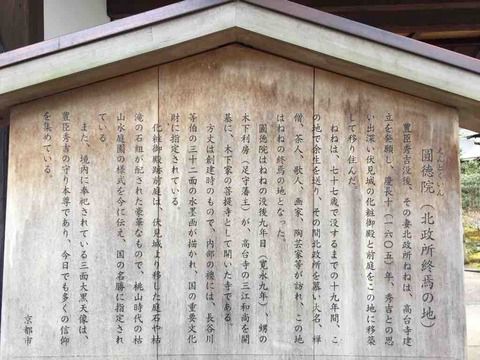 えんとくいん
圓徳院（北政所終焉の地）
豊臣秀吉没後、その妻北政所ねねは、高台寺建
立を発願し、慶長十（一六〇五）年、秀吉との思
い出深い伏見城の化粧御殿と前庭をこの地に移築
して移り住んだ。
ねねは、七十七歳で没するまでの十九年間、こ
の地で余生を送り、その間北政所を慕い大名、禅
僧、茶人、歌人、画家、陶芸家等が訪れ、この地
はねねの終焉の地となった。
圓徳院はねねの没後九年目（寛永九年）、甥の
木下利房（足守藩主）が、高台寺の三江和尚を開
基に、木下家の菩提寺として開いた寺である。
方丈は創建時のもので、内部の襖には、長谷川
等伯の三十二面の水墨画が描かれ、国の重要文化
財に指定されている。
化粧御殿跡前庭は、伏見城より移した庭石や枯
滝の石組が配された豪華なもので、桃山時代の枯
山水庭園の様式を今に伝え、国の名勝に指定され
ている。
また、境内に奉祀されている三面大黒天像は、
豊臣秀吉の守り本尊であり、今日でも多くの信仰
を集めている。
京都市